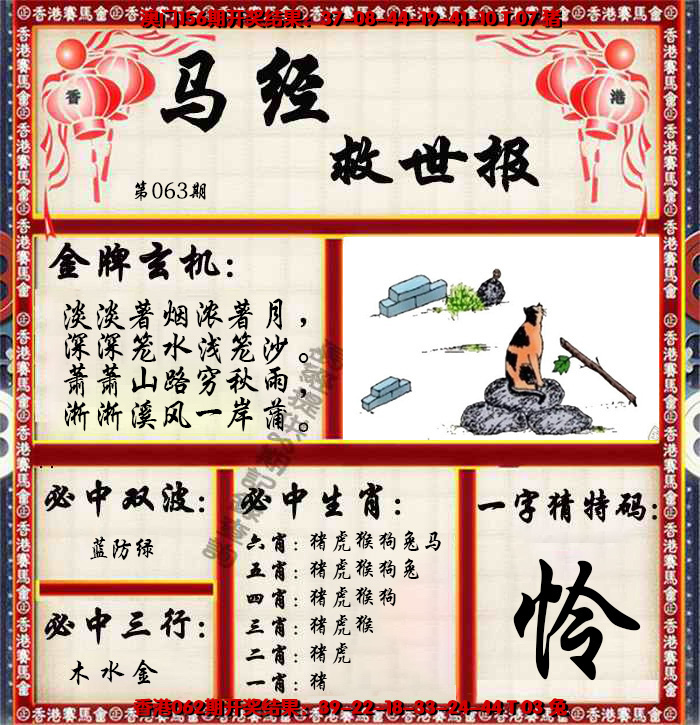 澳门156期开奖结果：37-08-44-19-41-10 T 07 猪
香 港
马经
救世报
第063期
金牌玄机：
淡淡著烟浓著月，
深深笼水浅笼沙。
萧萧山路穷秋雨，
淅淅溪风一岸蒲。
必中双波：
蓝防绿
必中三行：
木水金
必中生肖：
六肖：猪虎猴狗兔马
五肖：猪虎猴狗兔
四肖：猪虎猴狗
三肖：猪虎猴
二肖：猪虎
一肖：猪
一字猜特码：
怜
香港062期开奖结果：39-22-18-33-24-44 T 03 兔
香港賽馬會